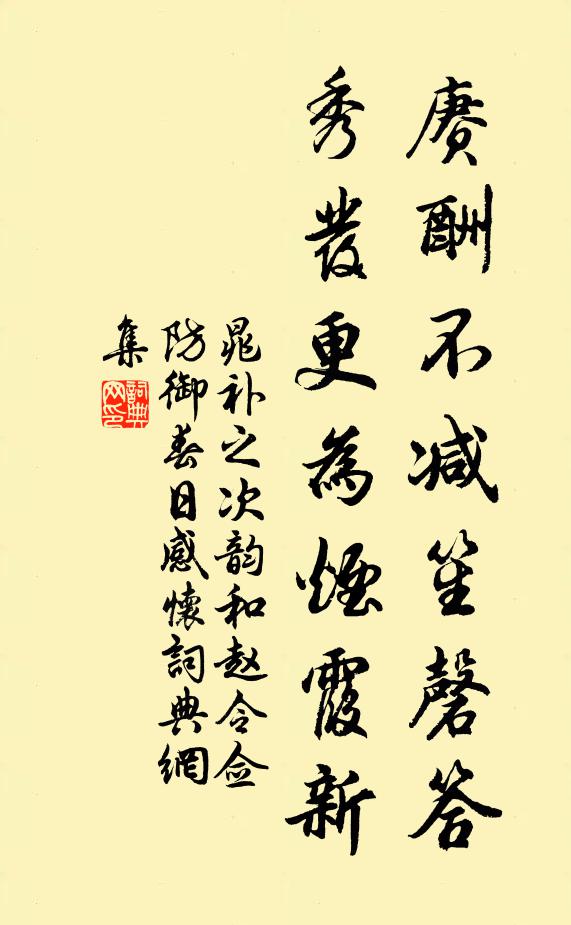 賡酬不减笙磬答
秀發更為煙霞新
晁补之次韵和赵令佥
防御春日感懷詞典網
集
詞典
网印